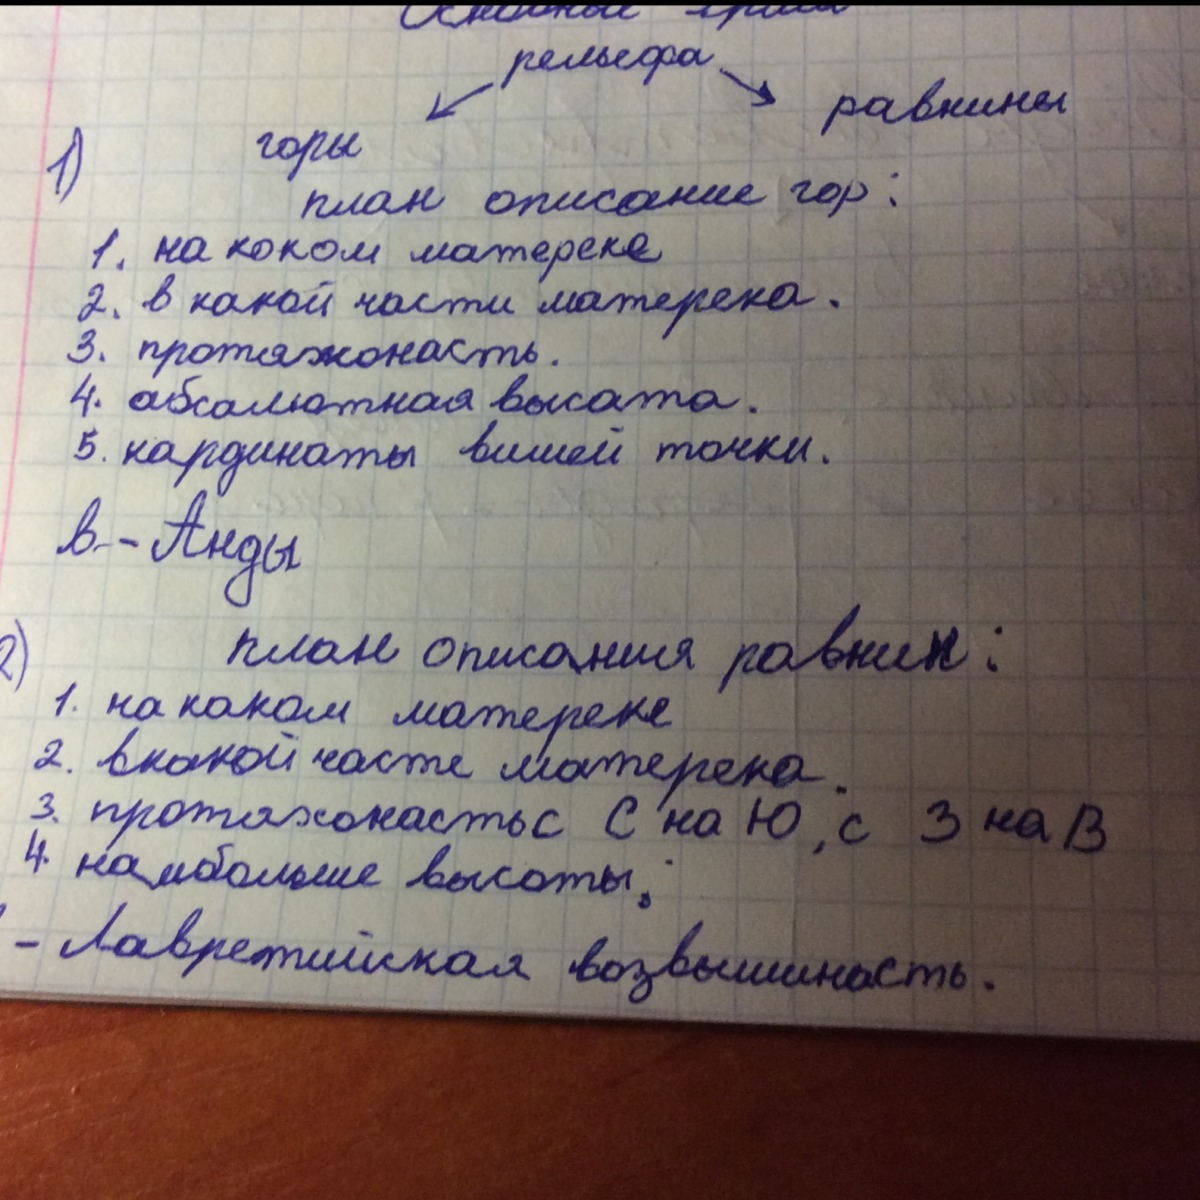 Основные
рельефа
равнины
горы
1)
план описание гор:
1. на коком матереке
2. в какой части матерека.
3. протяжонасть.
4. абсалютная высата.
5. кардинаты вишей точки.
в - Анды
2) план описания равнин:
1. на каком матереке
2. в какой часте матерека.
3. протяжонасть с С на Ю, с З на В
4. наибольше высоты.
- Лавретийская возвышинасть.